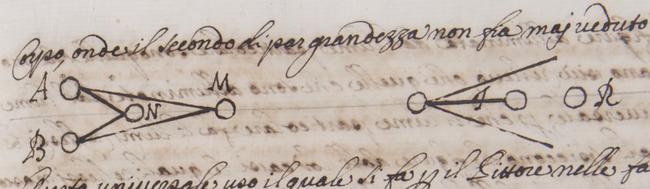 Corpo, onde il secondo di par grandezza non fia maj veduto
A M
N I R
B
universale uso il quale si fa p il Pittore nelle